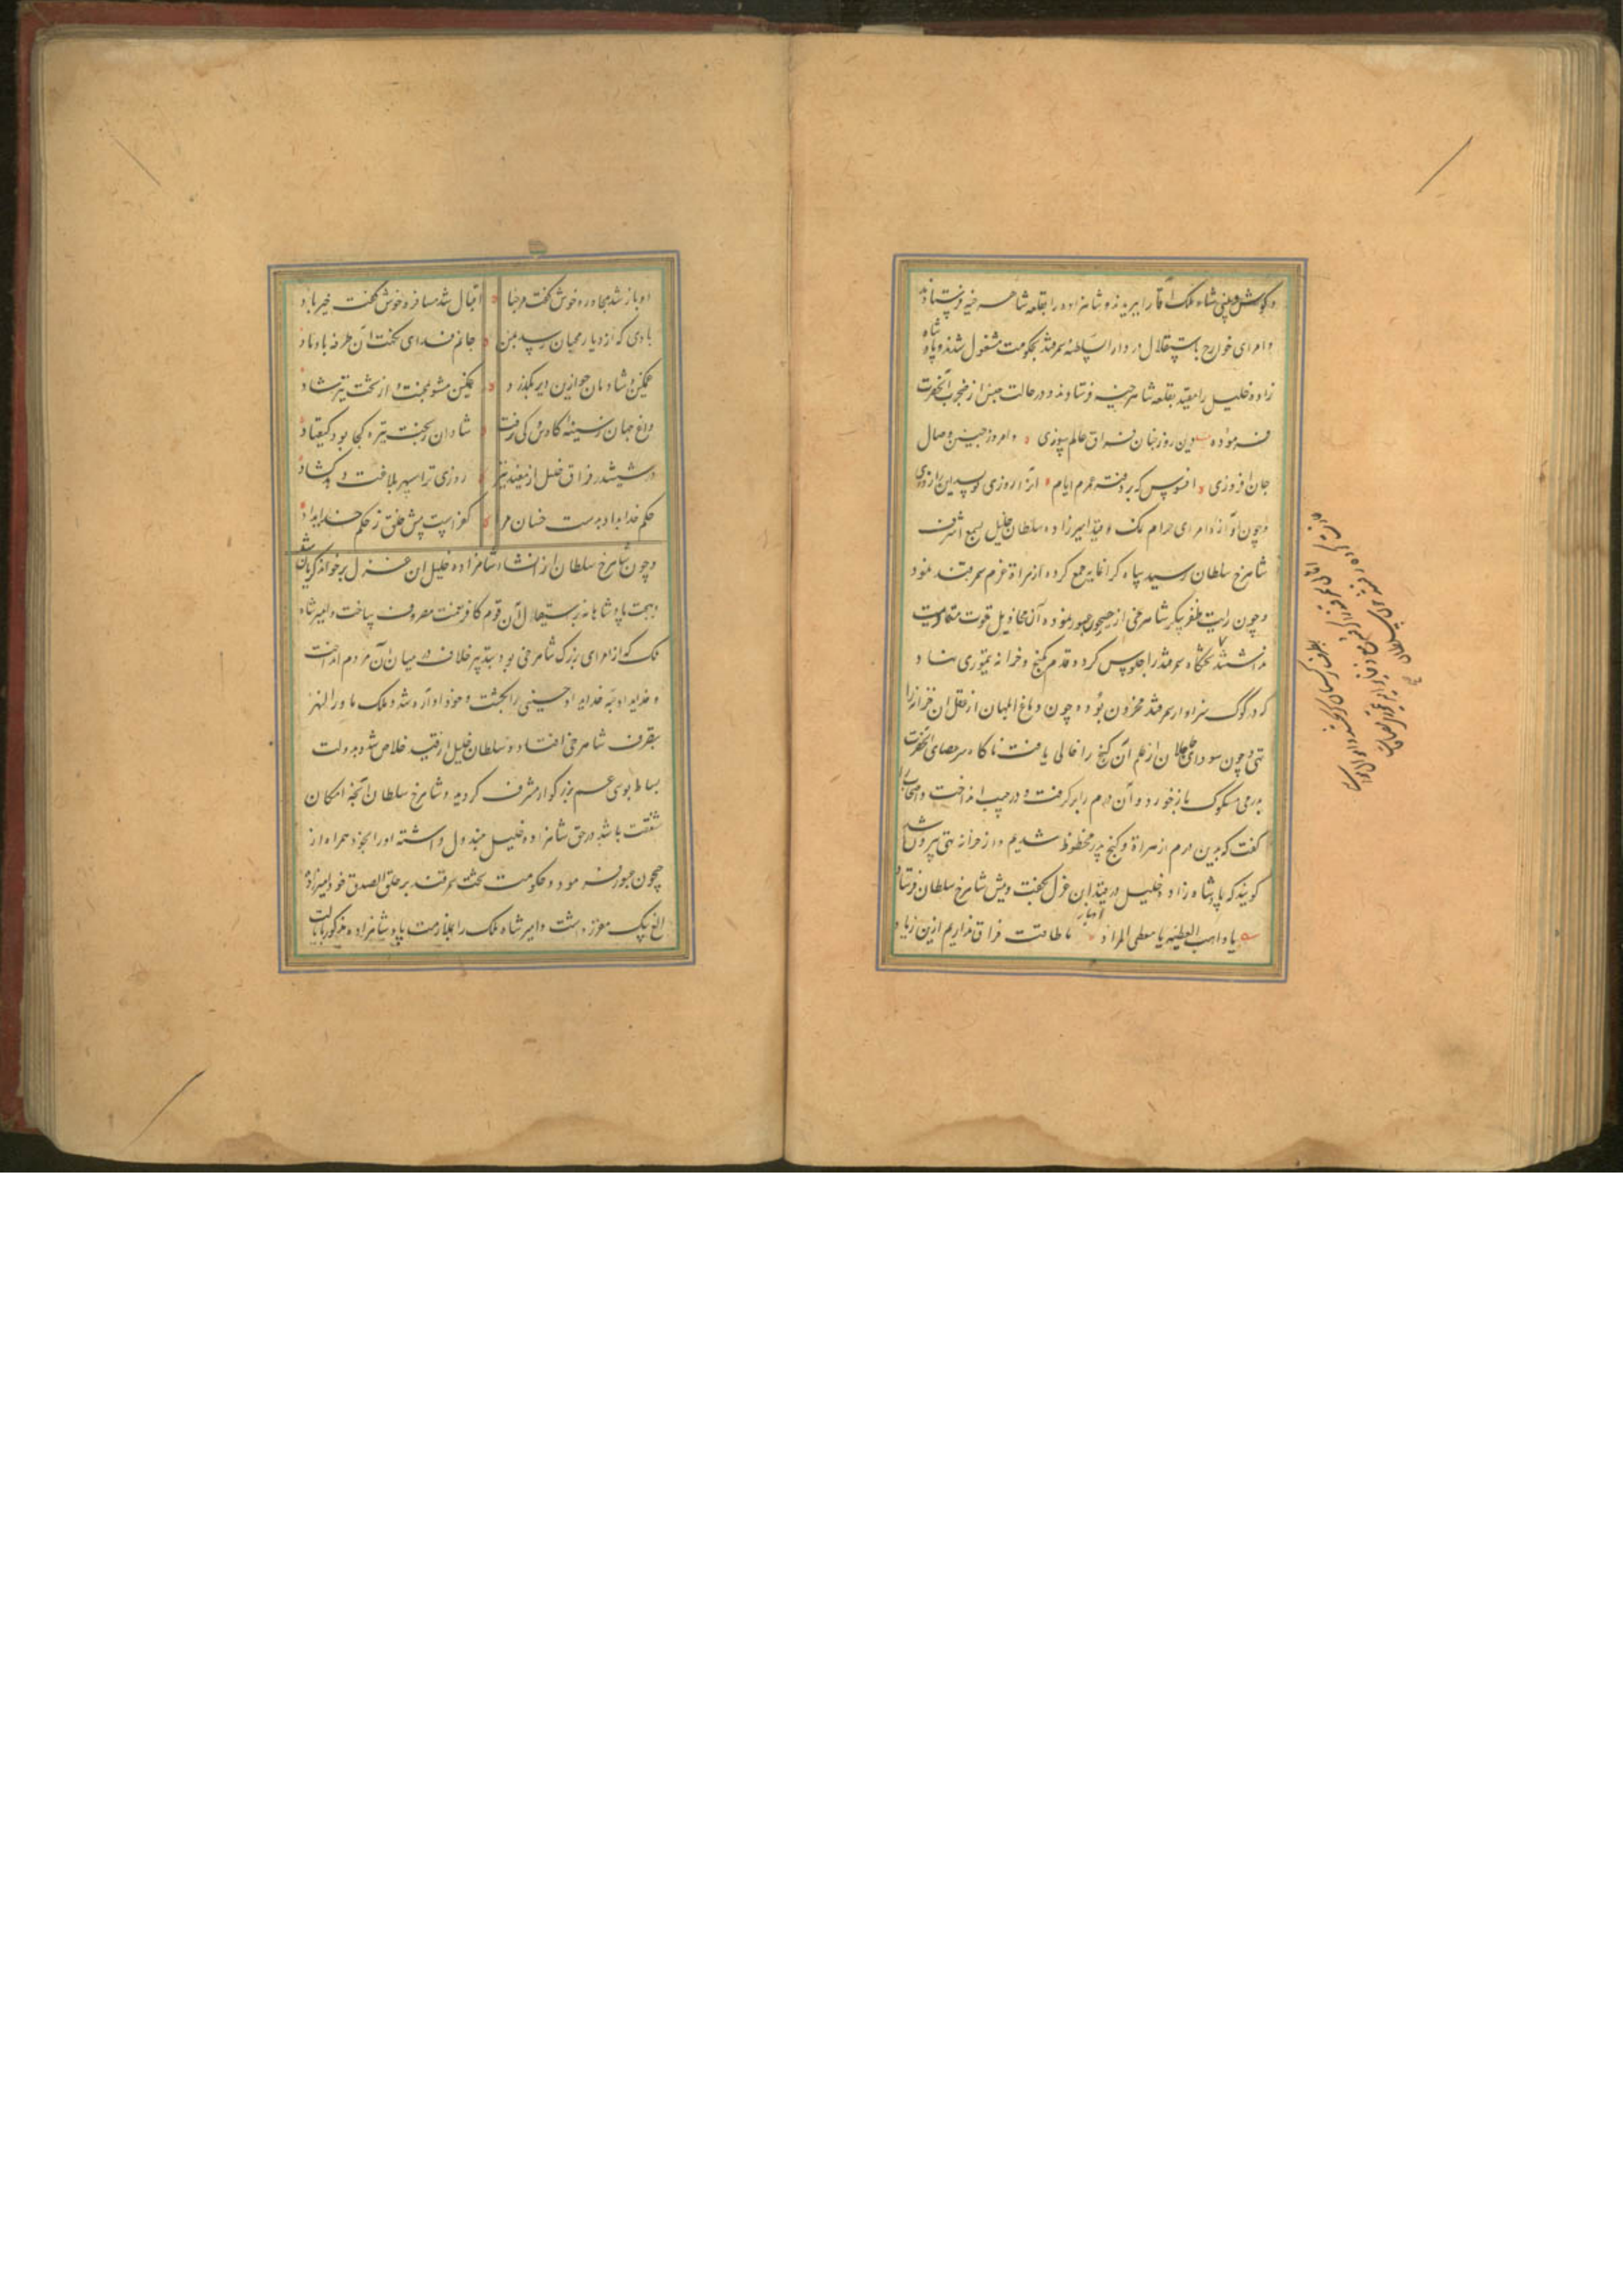 و گوش و بینی شاه ملک آقا را ببریدند و شاهزاده را بقلعه شاهرخیه فرستادند
و امرای خوارج باستقلال در دار السلطنه سمرقند بحکومت مشغول شدند و پادشاه
زاده خلیل را مقید بقلعه شاهرخیه فرستادند و در حالت حبس از محبوب آنحضرت
فرموده دین روز چنان فراق عالم سوزی و امروز چنین وصال
جان افروزی افسوس که بر دفتر عمرم ایام آنرا روزی نویسد این را روزی
و چون آوازه امرای حرام نمک و قید امیرزاده سلطان خلیل بسمع اشرف
شاهرخ سلطان رسید سپاه گرانمایه جمع کرده از هراة عزم سمرقند نمود
و چون رایت ظفر پیکر شاهرخی از جیحون عبور نموده آن مخاذیل قوت مقاومت
نداشتند تختگاه سمرقند را جلوس کرد و قدم بگنج و خزانه تیموری نهاد
که در گوک سرا و ارک سمرقند مخزون بوده چون دماغ ابلهان از عقل ان خزانه را
تهی و چون سودای جاهلان از علم آن گنج را خالی یافت ناگاه سر عصای آنحضرت
بدرمی مسکوک بازخورد و آن درم را برگرفت و در جیب انداخت و باصحاب
گفت که بدین درم از میراث و گنج پدر محظوظ شدیم و از خزانه تهی بیرون شد
گویند که پادشاه زاده خلیل در قید این غزل بگفت و پیش شاهرخ سلطان فرستاد
یا واهب العطیه یا معطی المراد ما طاقت فراق نداریم ازین زیاد
ادبار
او باز شد مجاور و خوش گفت مرحبا اقبال شد مسافر و خوش گفت خیر باد
بادی که از دیار محبان رسد بمن جانم فدای نکهت آن طرفه باد باد
غمگین و شادمان چو ازین دیر بگذرد غمگین مشو بمحنت و از تخت نیز شاد
داغ جهان ز سینه کاوس و کی نرفت شادان ز بخت تیره کجا بود کیقباد
در ششدر فراق خلیل از نیفتد نیز روزی ترا سپهر بلا نیافت در گشاد
حکم خدا بداد بدست خسان مرا کفر است پیش خلق ز حکم خدا بداد
و چون شاهرخ سلطان از انشاء شاهزاده خلیل این غزل برخواند گریان شد
و همت پادشاهانه بر استیصال آن قوم کافر نعمت مصروف ساخت و امیر شاه
ملک که از امرای بزرگ شاهرخی بود بتدبیر خلاف در میان آن مردم انداخت
و خدایداد بته خدایداد حسینی را بکشت و خود آواره شد و ملک ماوراالنهر
بتصرف شاهرخی افتاد و سلطان خلیل از قید خلاص شد و بدولت
بساط بوسی عم بزرگوار مشرف گردید و شاهرخ سلطان آنچه امکان
شفقت باشد در حق شاهزاده خلیل مبذول داشته او را بخود همراه از
جیحون عبور فرمود و حکومت تخت سمرقند بر خلق الصدق خود امیرزاده
الغ بیک معزز داشت و امیر شاه ملک را بملازمت پادشاهزاده مذکور بایالت